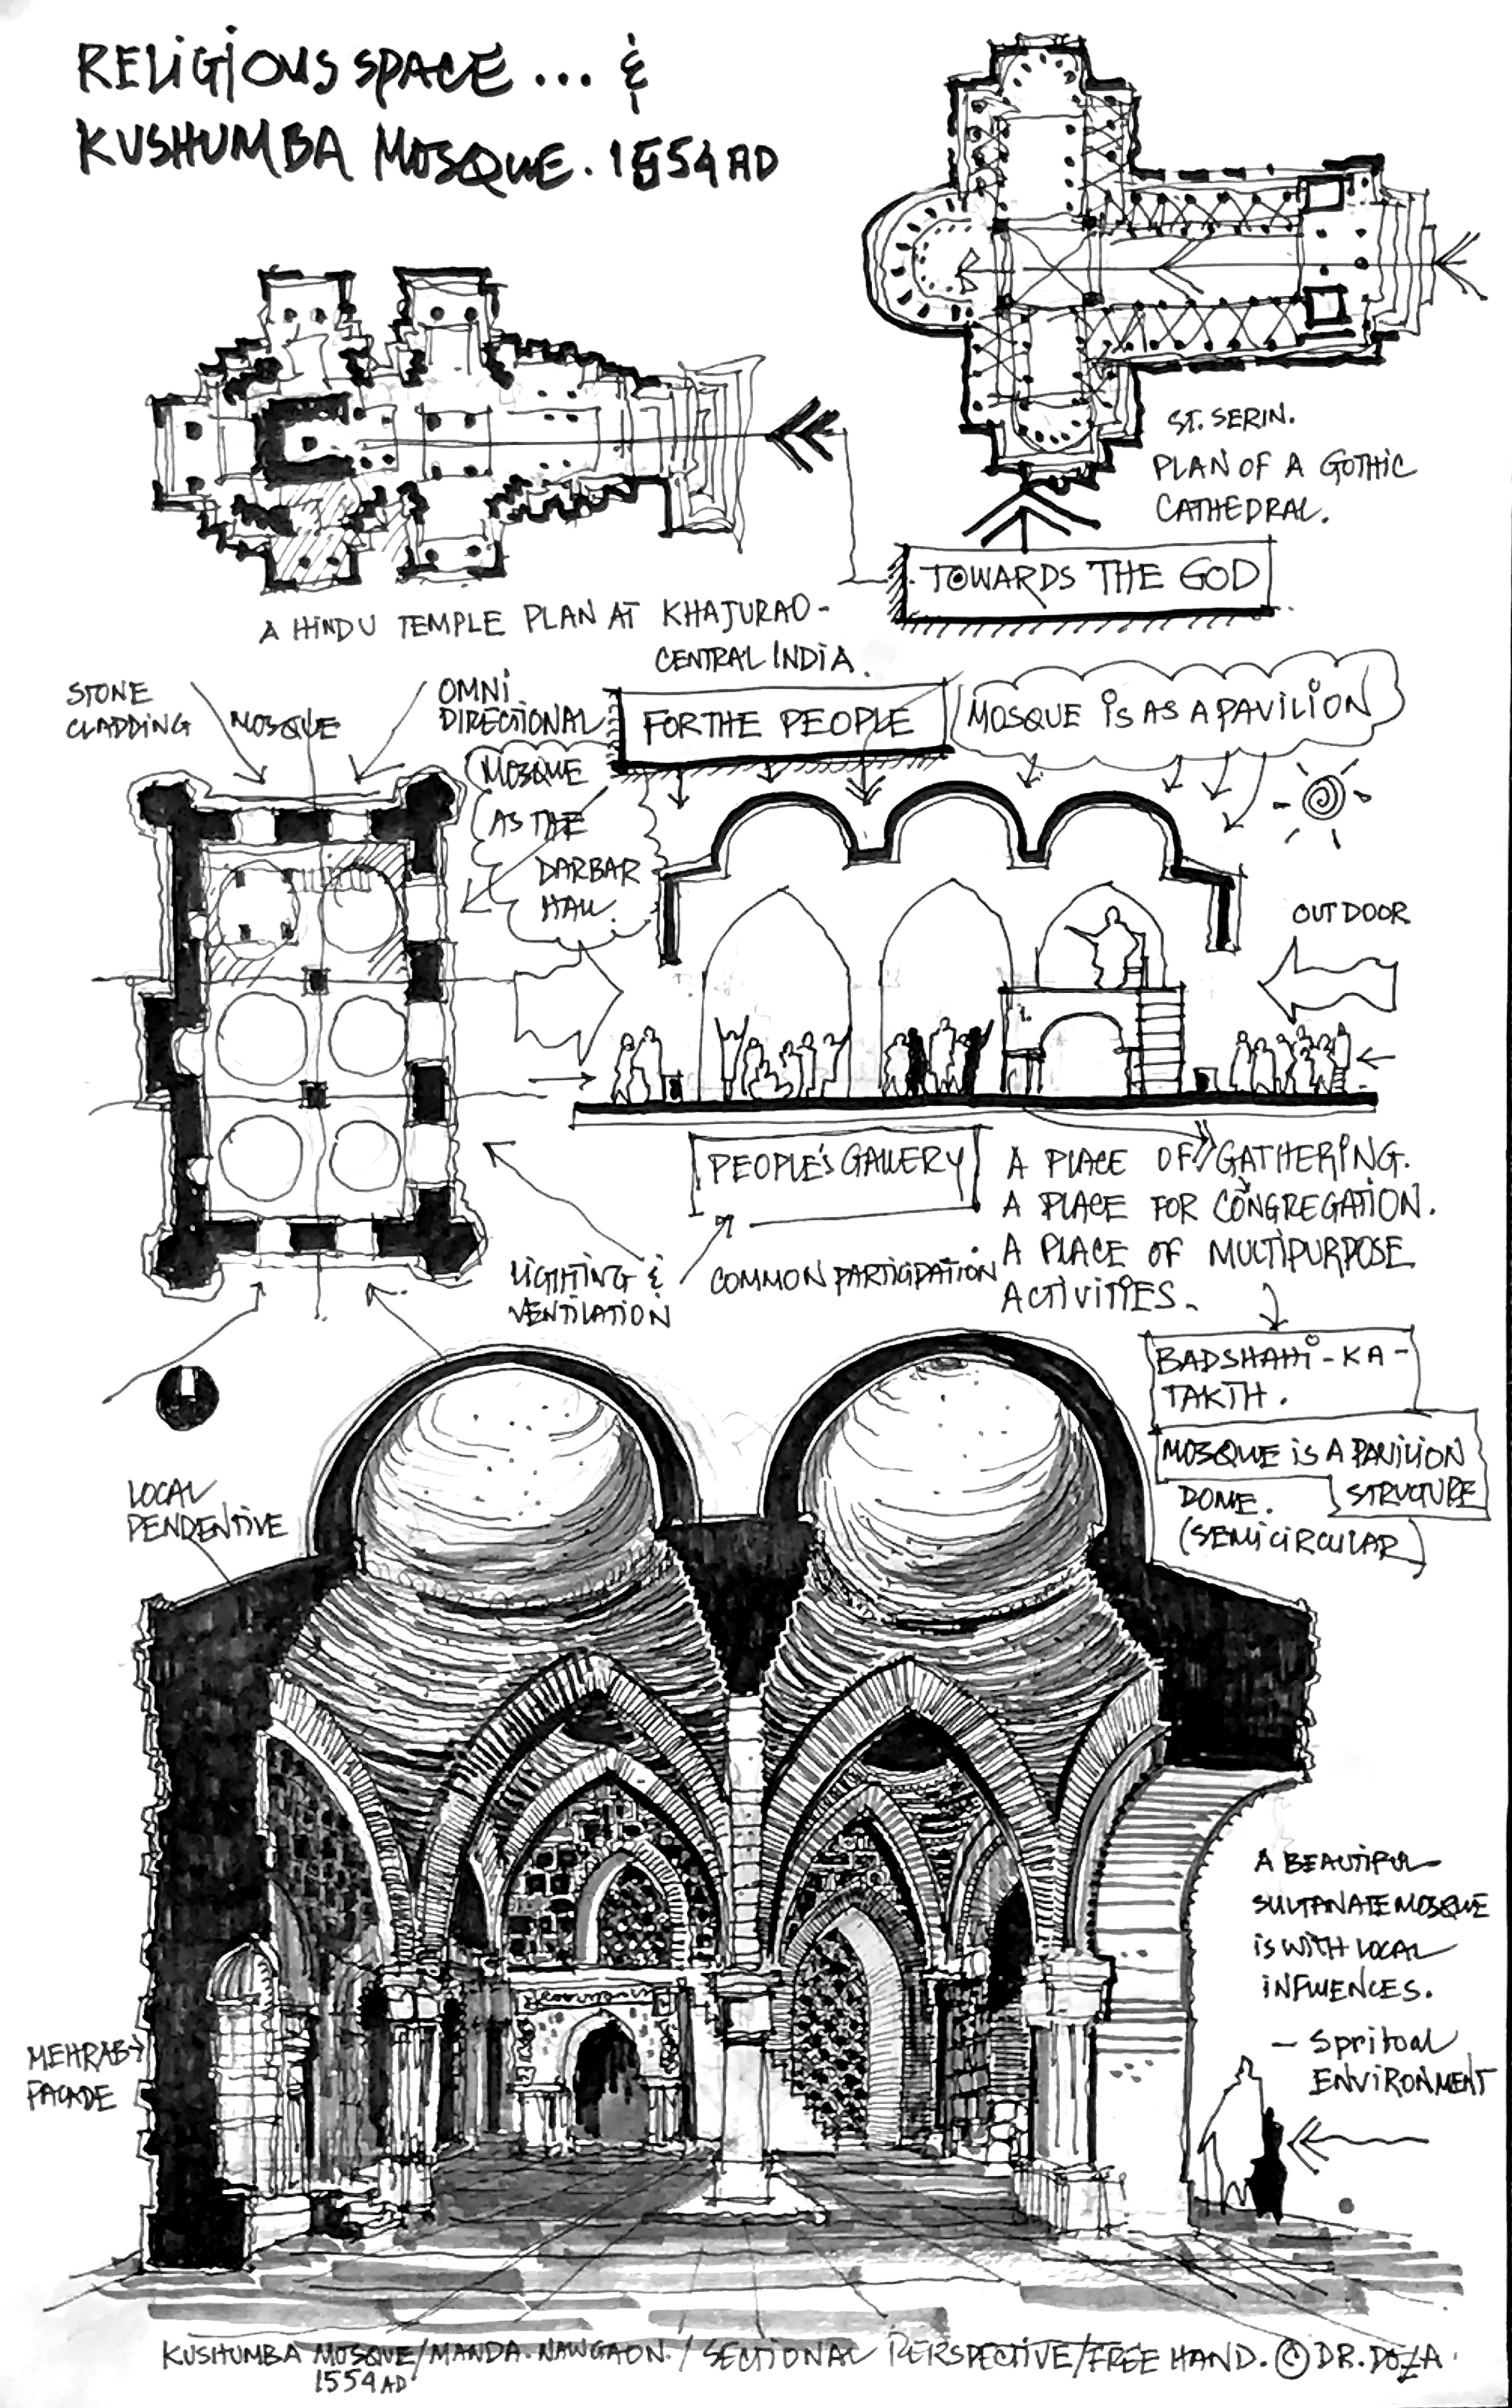 RELIGIOUS SPACE ... &
KUSHUMBA MOSQUE. 1554 AD
ST. SERIN.
PLAN OF A GOTHIC
CATHEDRAL.
TOWARDS THE GOD
A HINDU TEMPLE PLAN AT KHAJURAO -
CENTRAL INDIA.
STONE
CLADDING
MOSQUE
OMNI
DIRECTIONAL
FOR THE PEOPLE
MOSQUE IS AS A PAVILION
MOSQUE
AS THE
DARBAR
HALL.
OUTDOOR
PEOPLE'S GALLERY
A PLACE OF GATHERING.
A PLACE FOR CONGREGATION.
A PLACE OF MULTIPURPOSE
ACTIVITIES.
LIGHTING &
VENTILATION
COMMON PARTICIPATION
BADSHAHI-KA-
TAKTH.
MOSQUE IS A PAVILION
STRUCTURE
DOME.
(SEMICIRCULAR)
LOCAL
PENDENTIVE
A BEAUTIFUL
SULTANATE MOSQUE
IS WITH LOCAL
INFLUENCES.
- SPRITOAL
ENVIRONMENT
MEHRAB
FACADE
KUSHUMBA MOSQUE/MANDA. NAWGAON. / SECTIONAL PERSPECTIVE/FREE HAND. © DR. DOZA.
1554 AD